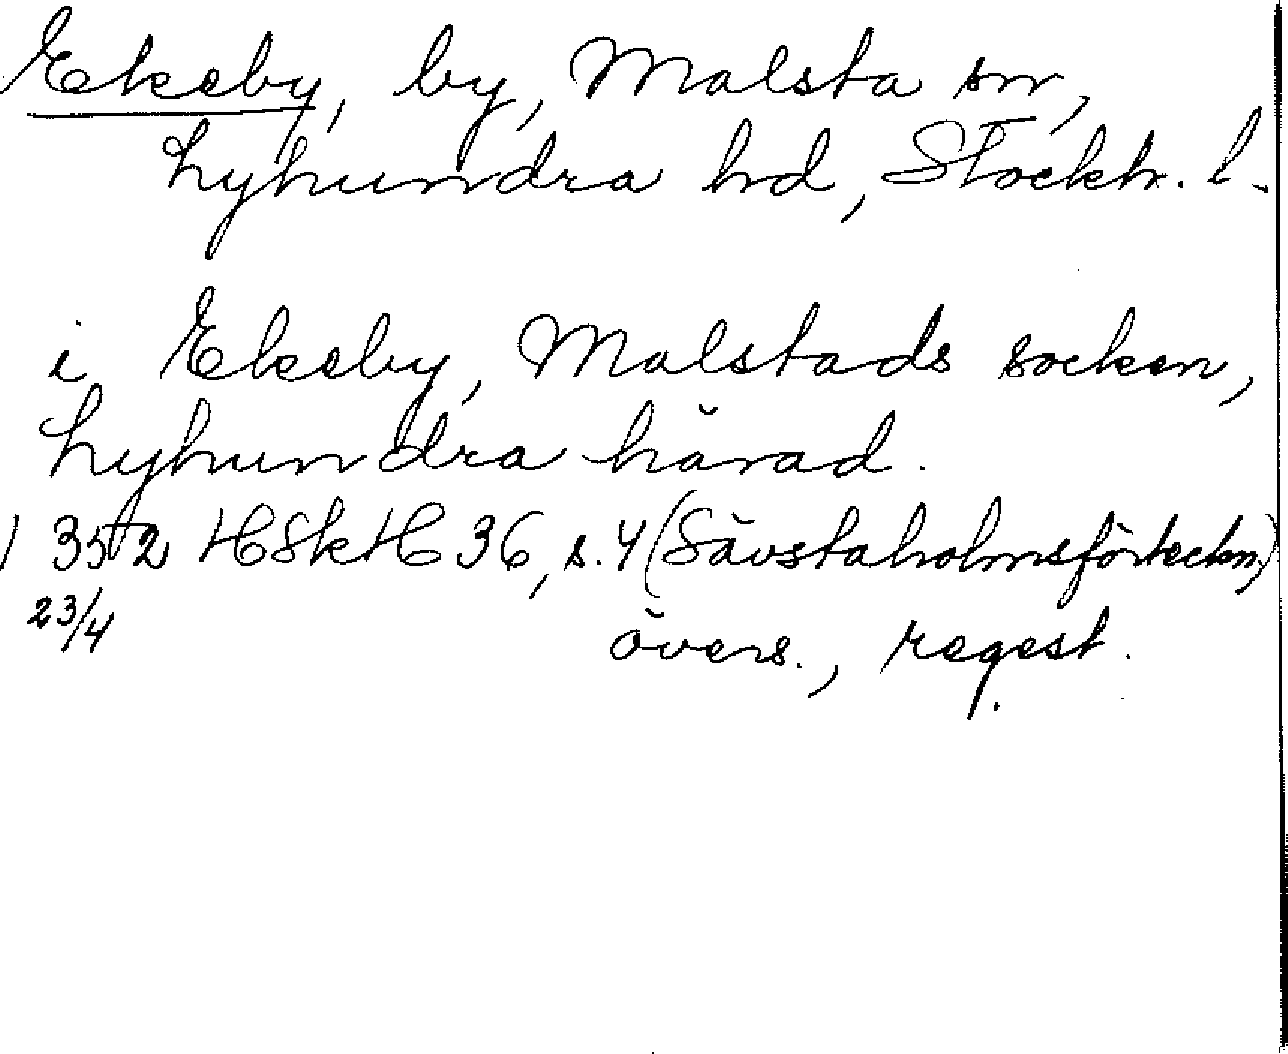 Ekeby, by, Malsta sn,
Lyhundra hd, Stockh. l.
i Ekeby, Malstads socken,
Lyhundra härad.
1352 HSkH 36, s. 4 (Sävstaholmsförteckn.)
23/4 övers., regest.